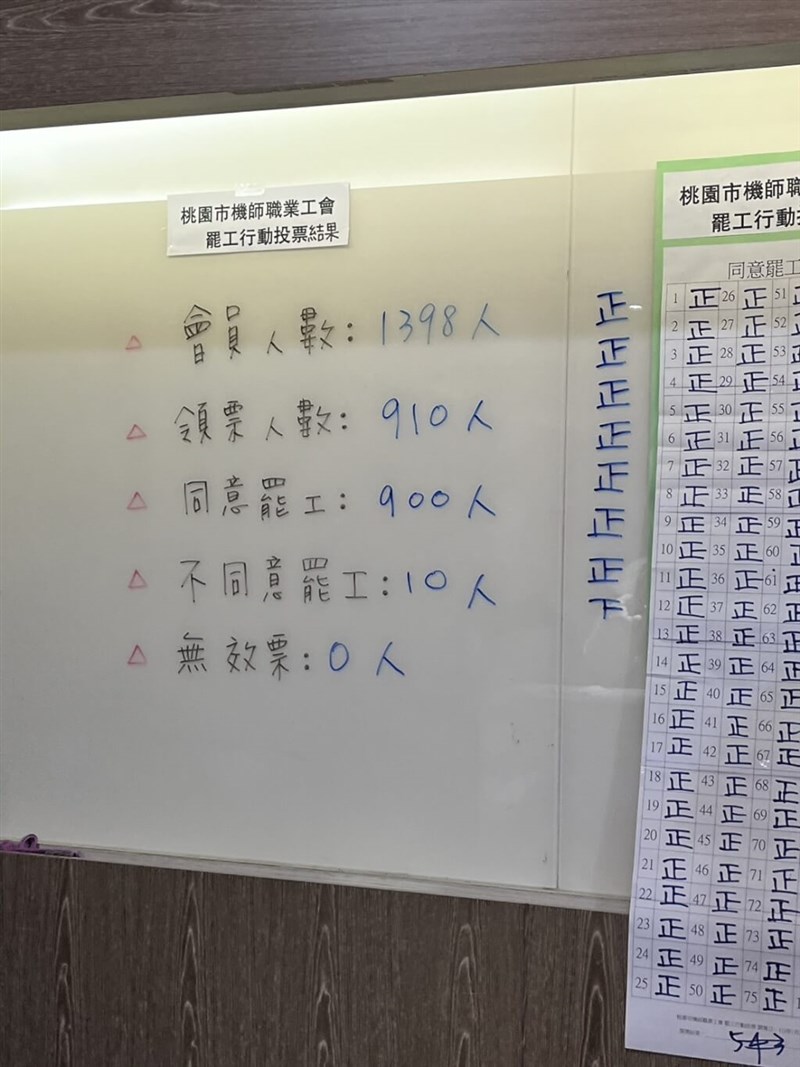 桃園市機師職業工會
罷工行動投票結果
△ 會員人數：1398人
△ 領票人數：910人
△ 同意罷工：900人
△ 不同意罷工：10人
△ 無效票：0人
正
正
正
正
正
正
正
下
桃園市機師職
罷工行動
同意罷工
1 正 26 正 51
2 正 27 正 52
3 正 28 正 53
4 正 29 正 54
5 正 30 正 55
6 正 31 正 56
7 正 32 正 57
8 正 33 正 58
9 正 34 正 59
10 正 35 正 60
11 正 36 正 61 正
12 正 37 正 62 正
13 正 38 正 63 正
14 正 39 正 64 正
15 正 40 正 65 正
16 正 41 正 66 正
17 正 42 正 67 正
18 正 43 正 68 正
19 正 44 正 69 正
20 正 45 正 70 正
21 正 46 正 71 正
22 正 47 正 72 正
23 正 48 正 73 正
24 正 49 正 74 正
25 正 50 正 75 正
543